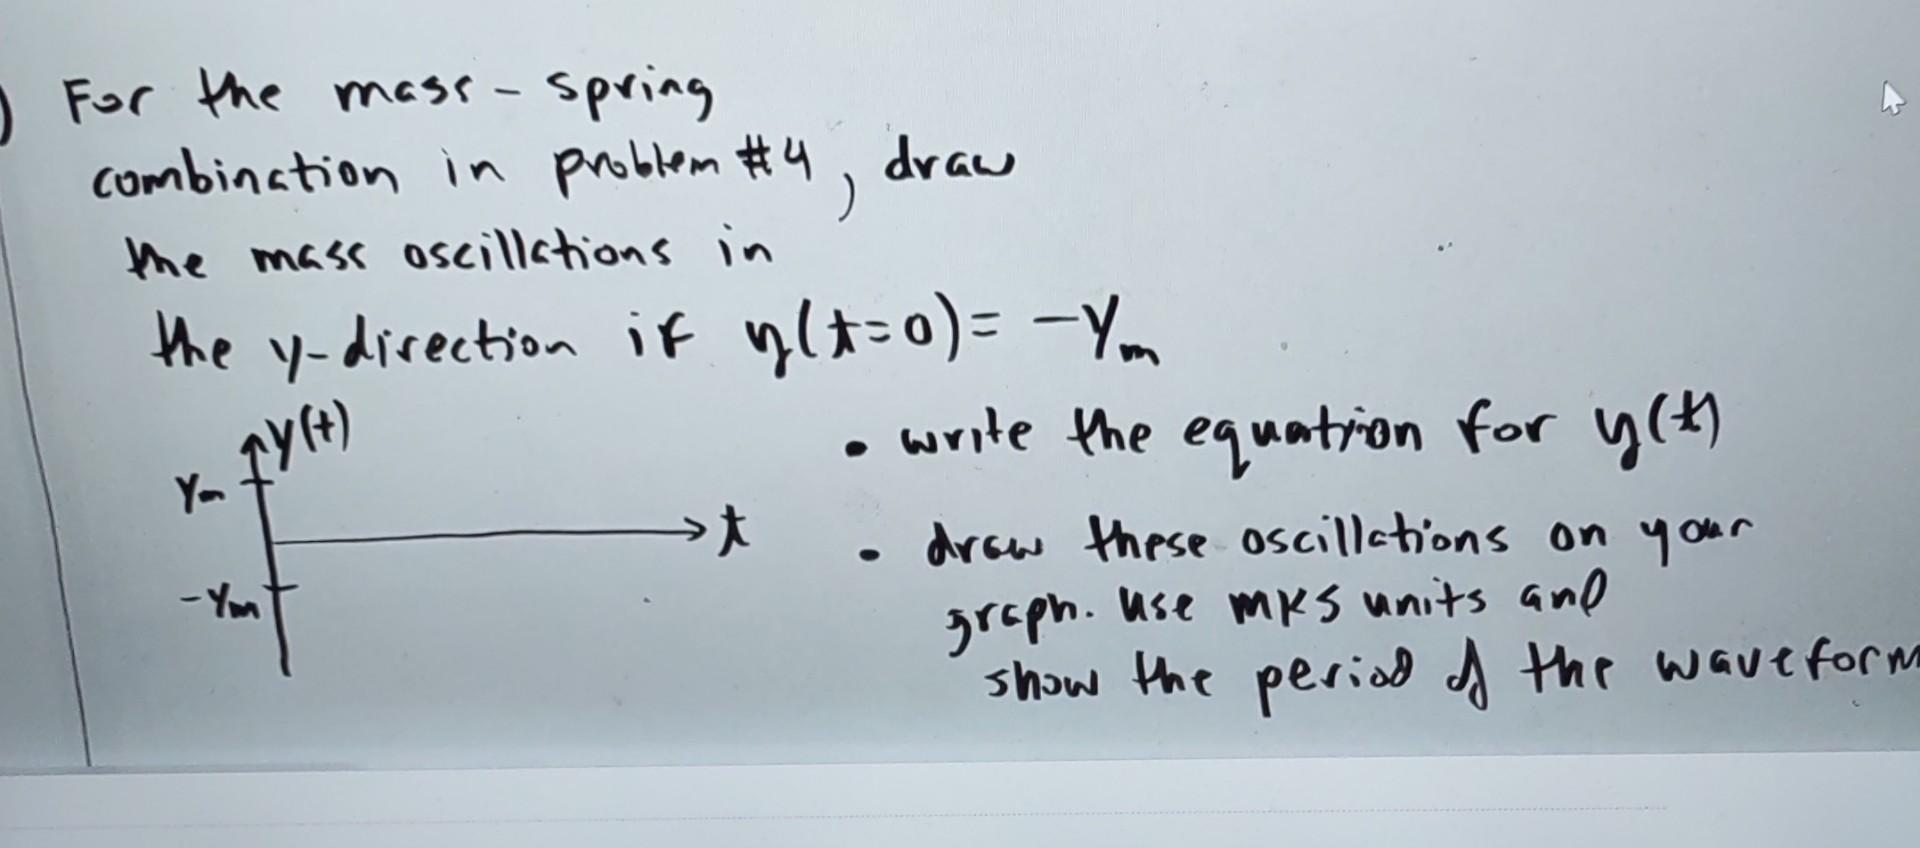 ) For the mass - spring
combination in problem #4, draw
the mass oscillations in
the y-direction if y(t=0) = -Ym
y(t)
Ym
t
-Ym
• write the equation for y(t)
• draw these oscillations on your
graph. use mks units and
show the period of the waveform